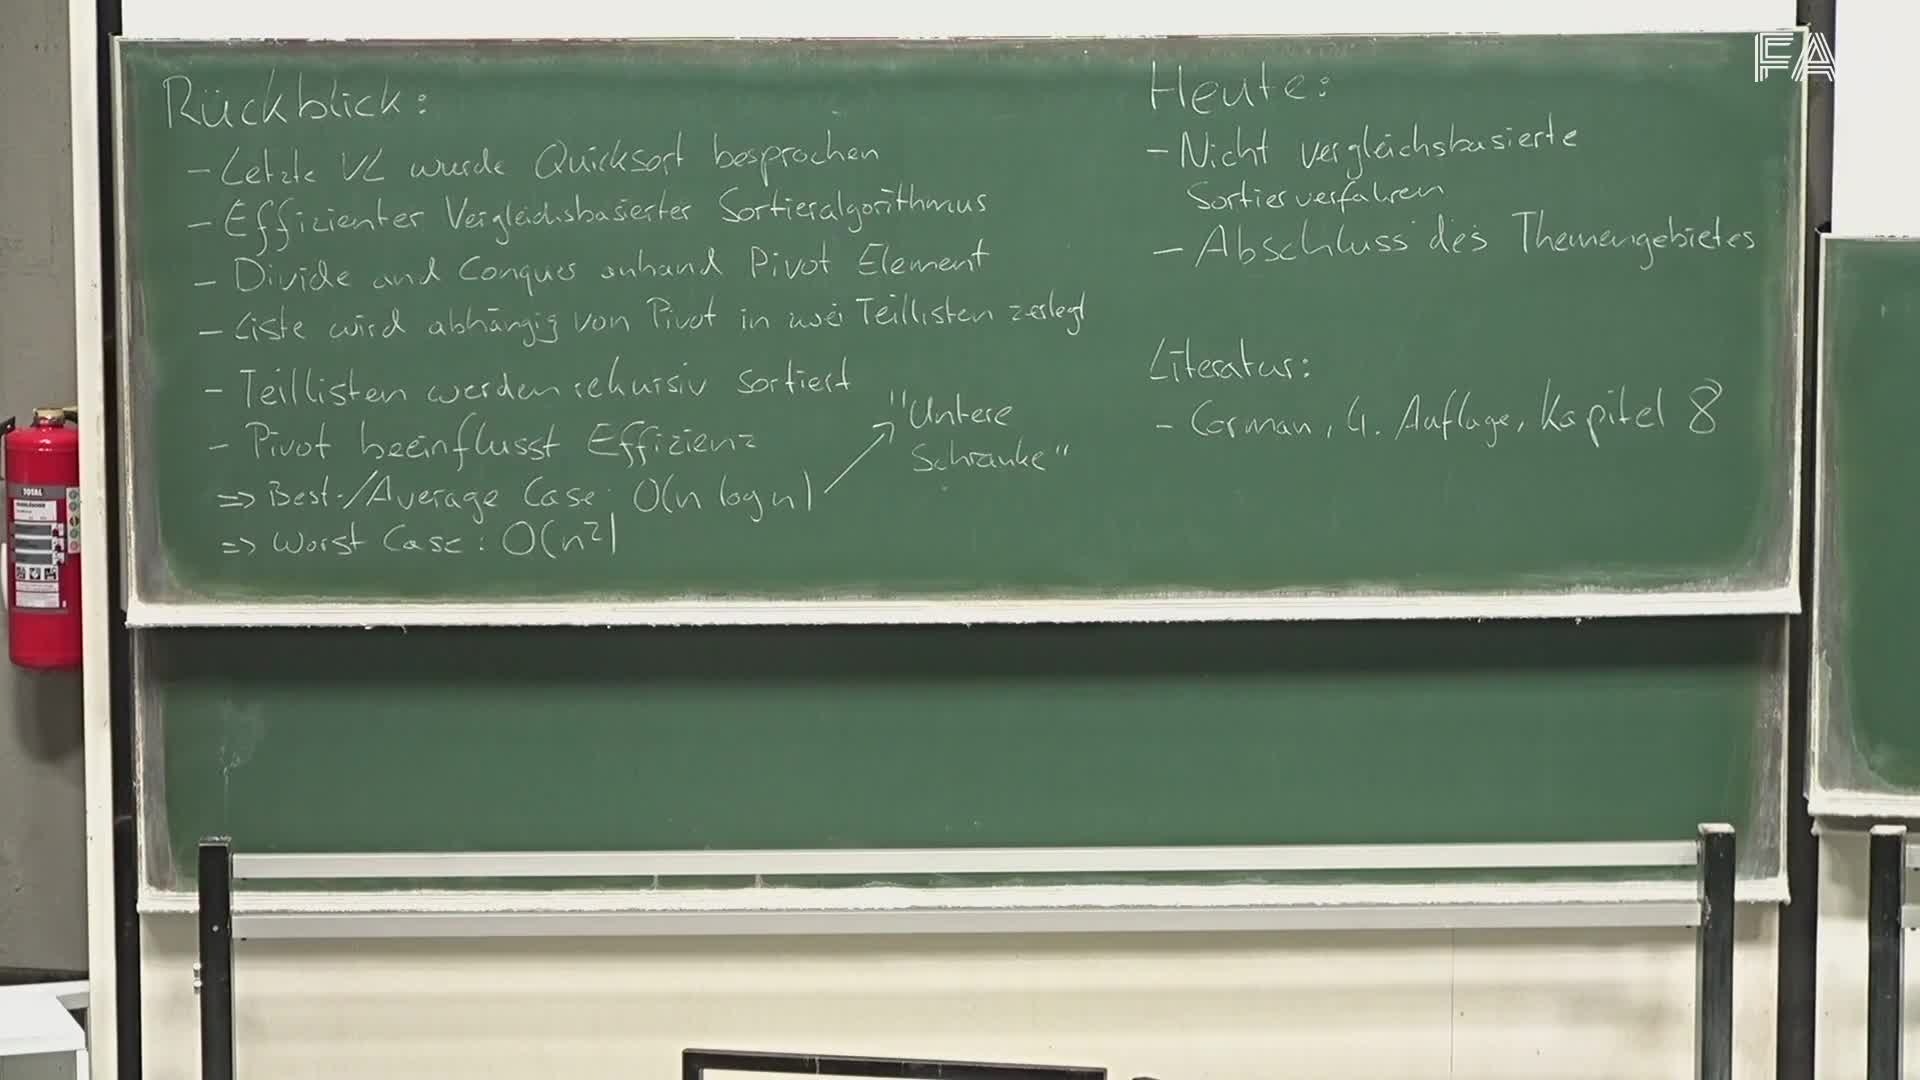 Rückblick:
- Letzte VL wurde Quicksort besprochen
- Effizienter Vergleichsbasierter Sortieralgorithmus
- Divide and Conquer anhand Pivot Element
- Liste wird abhängig von Pivot in zwei Teillisten zerlegt
- Teillisten werden rekursiv sortiert
- Pivot beeinflusst Effizienz
=> Best-/Average Case: O(n log n)
=> Worst Case: O(n²)
"Untere
Schranke"
Heute:
- Nicht vergleichsbasierte
Sortierverfahren
- Abschluss des Themengebietes
Literatur:
- Corman, 4. Auflage, Kapitel 8
FA
TOTAL